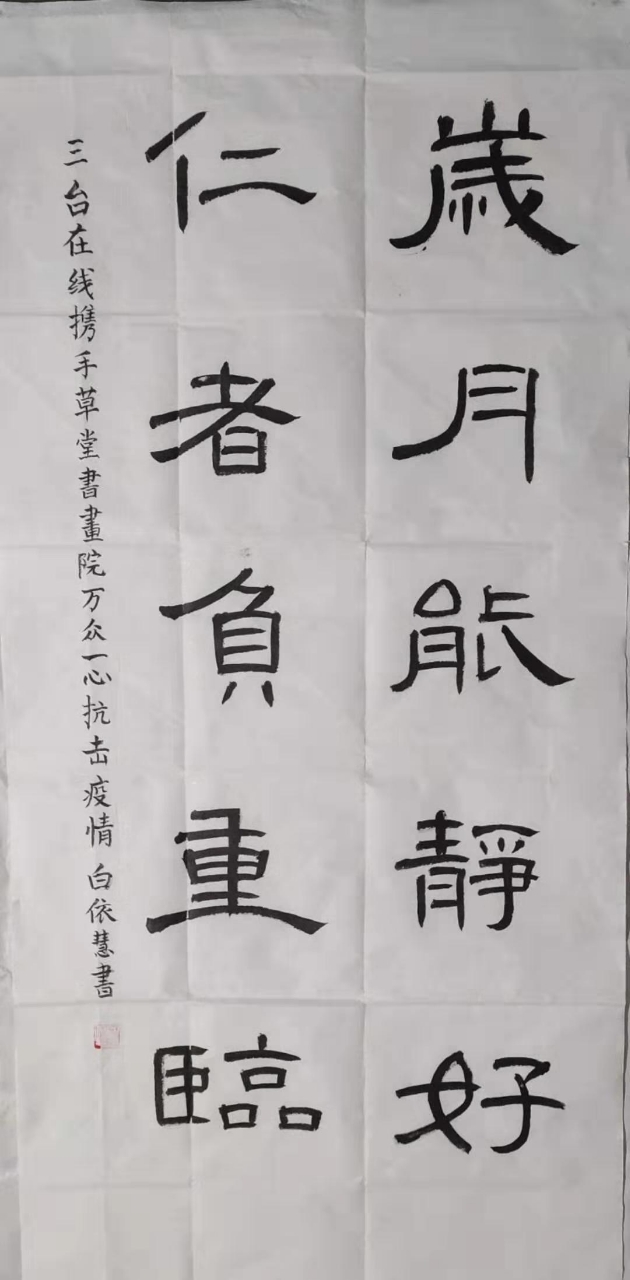 歲月能靜好
仁者負重臨
三台在线携手草堂書畫院万众一心抗击疫情 白依慧書